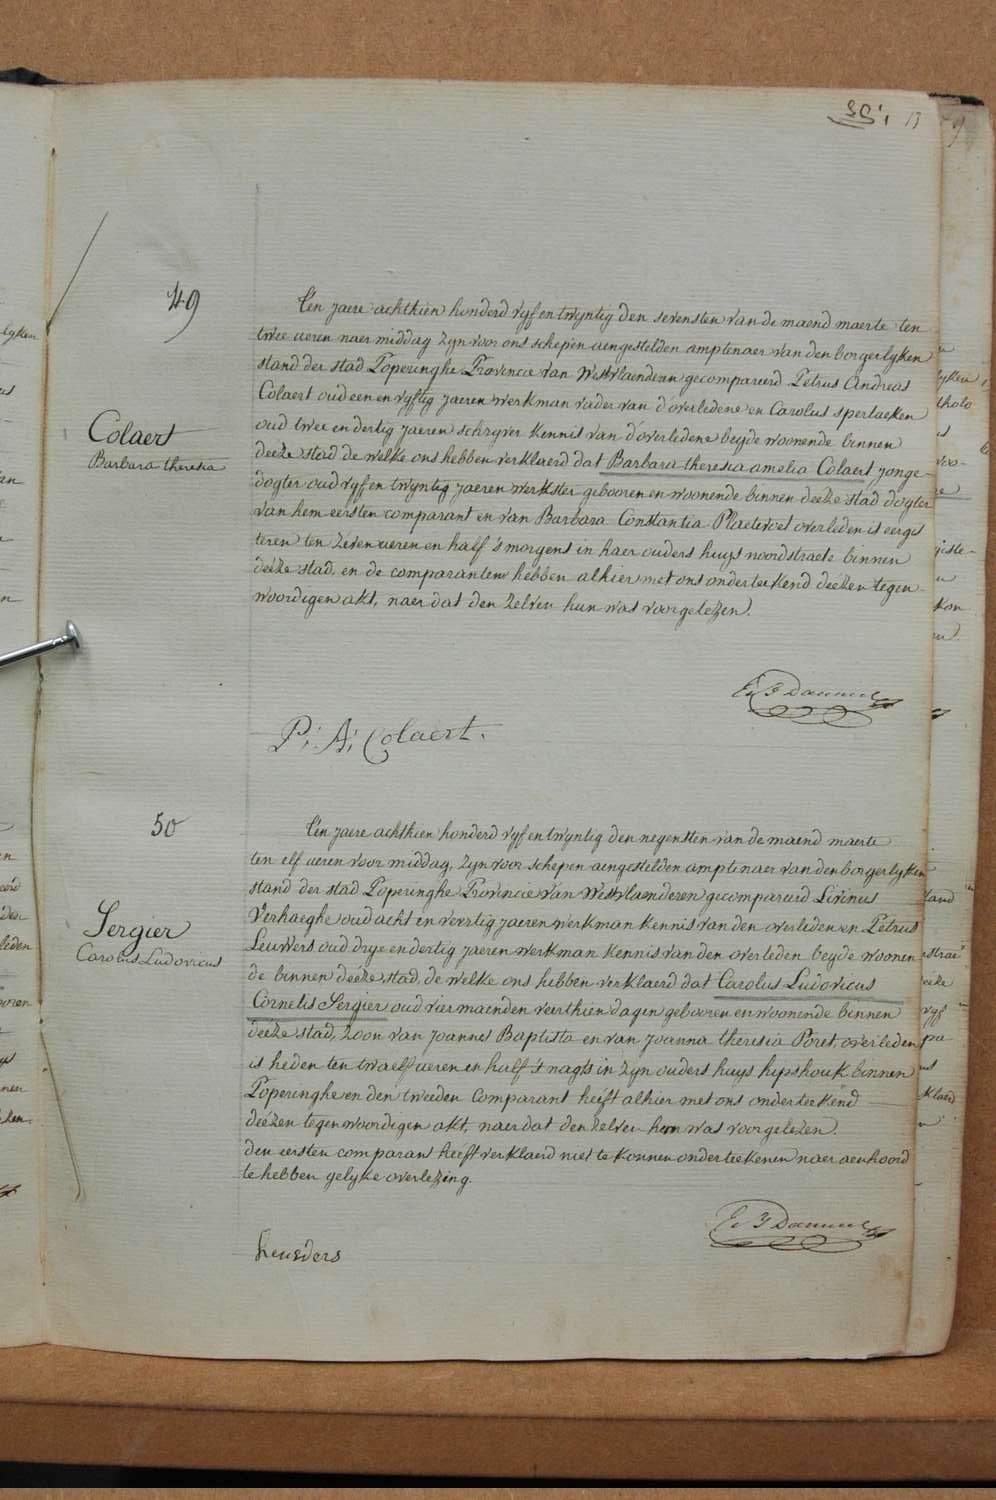 13
49
Colaert
Barbara theresia
Ten jaere achthien honderd vyf en twyntig den sevensten van de maend maerte ten
twee ueren naer middag zyn voor ons schepen aengestelden amptenaer van den borgerlyken
stand der stad Poperinghe Provincie van Westvlaenderen gecompareerd Petrus Andreas
Colaert oud een en vyftig jaeren werkman vader van d'overledene en Carolus sperlaeken
oud twee en dertig jaeren schryver kennis van d'overledene beyde woonende binnen
deéze stad de welke ons hebben verklaerd dat Barbara theresia amelia Colaert jonge-
dogter oud vyf en twyntig jaeren werkster gebooren en woonende binnen deéze stad dogter
van hem eersten comparant en van Barbara Constantia Plaetevoet overleden is eergis
teren ten zeven ueren en half 's morgens in haer ouders huys noordstraete binnen
deéze stad, en de comparanten hebben alhier met ons onderteekend deézen tegen-
woordigen akt, naer dat den zelven hun was voorgelezen.
P: A: Colaert.
50
Sergier
Carolus Ludovicus
Ten jaere achthien honderd vyf en twyntig den negensten van de maend maerte
ten elf ueren voor middag, zyn voor schepen aengestelden amptenaer van den borgerlyken
stand der stad Poperinghe Provincie van Westvlaenderen gecompareerd Livinus
Verhaeghe oud acht en veertig jaeren werkman kennis van den overledenen Petrus
Leuvers oud drye en dertig jaeren werkman kennis van den overleden beyde woonen
de binnen deéze stad, de welke ons hebben verklaerd dat Carolus Ludovicus
Cornelis Sergier oud vier maenden veerthien dagen gebooren en woonende binnen
deéze stad, zoon van Joannes Baptista en van Joanna theresia Poret, overleden
is heden ten twaelf ueren en half 's nagts in zyn ouders huys hipshouk binnen
Poperinghe en den tweeden Comparant heéft alhier met ons onderteekend
deézen tegenwoordigen akt, naer dat den zelven hem was voorgelezen.
den eersten comparant heéft verklaerd niet te konnen onderteekenen naer aenhoord
te hebben gelyke overlezing.